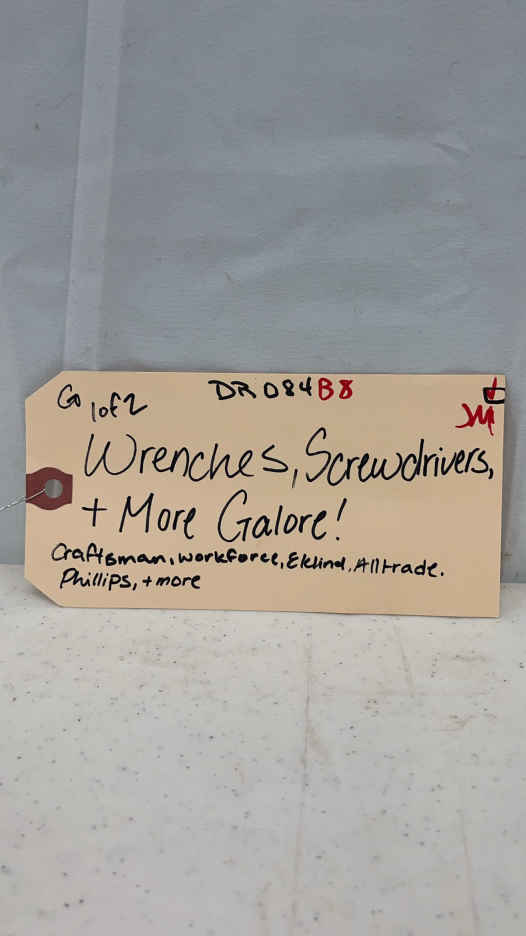 G 1 of 2 DR084B8
JM
Wrenches, Screwdrivers,
+ More Galore!
Craftsman, Workforce, Eklind, Alltrade.
Phillips, + more